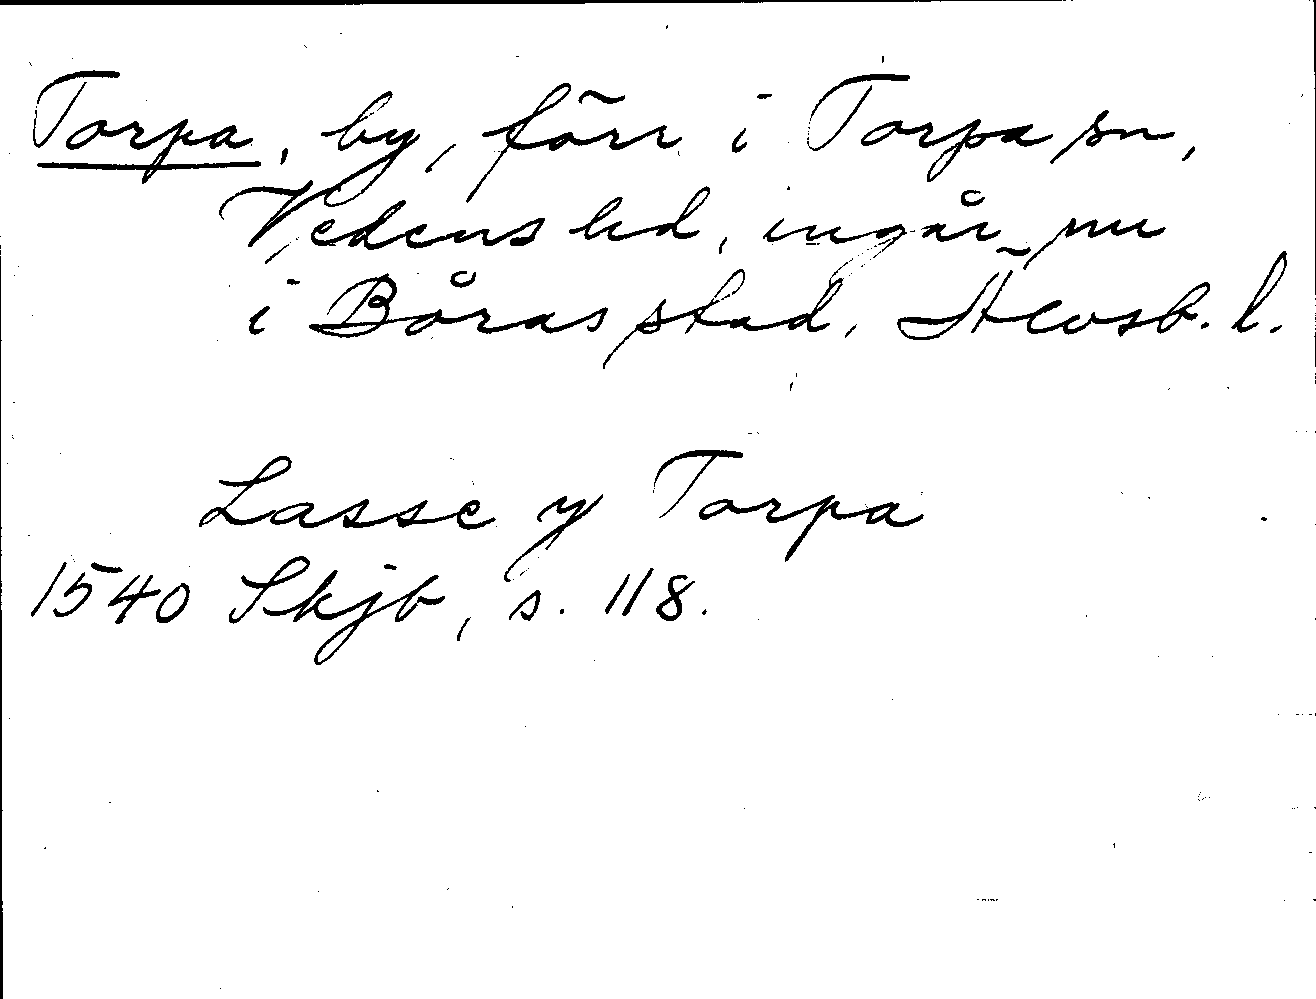 Torpa, by, förr i Torpa sn,
Vedens hd, ingår nu
i Borås stad, Älvsb. l.
Lasse y Torpa
1540 Skjb, s. 118.